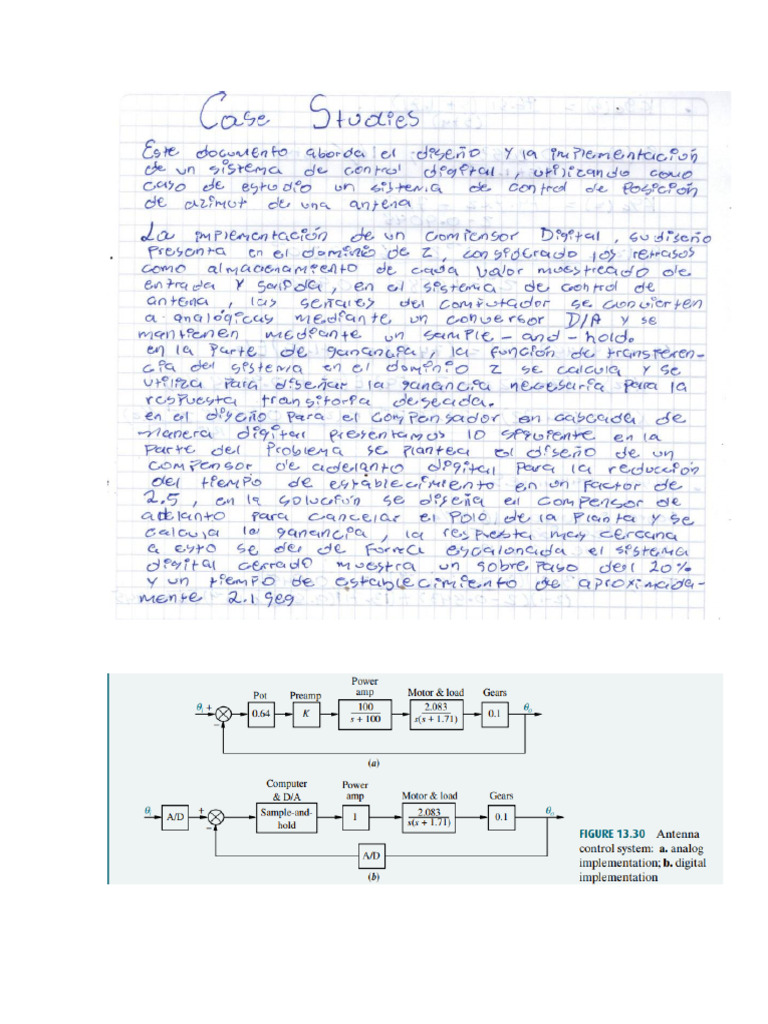 Case Studies
Este documento aborda el diseño y la implementación
de un sistema de control digital, utilizando como
caso de estudio un sistema de control de Posición
de azimut de una antena
La implementación de un comensor Digital, su diseño
Presenta en el dominio de Z, considerado los retrasos
como almacenamiento de cada valor muestreado de
entrada y salida, en el sistema de control de
antena, las señales del computador se convierten
a analógicas mediante un conversor D/A y se
mantienen mediante un sample-and-hold.
en la parte de ganancia, la función de transferen-
cia del sistema en el dominio Z se calcula y se
utiliza para diseñar la ganancia necesaria para la
respuesta transitoria deseada.
en el diseño para el compensador en cascada de
manera digital presentamos lo siguiente en la
parte del problema se plantea el diseño de un
compensor de adelanto digital para la reducción
del tiempo de establecimiento en un factor de
2.5, en la solución se diseña el compensor de
adelanto para cancelar el Polo de la Planta y se
calcula la ganancia, la respuesta mas cercana
a esto se de de forma escalonada el sistema
digital cerrado muestra un sobre paso del 20%
y un tiempo de establecimiento de aproximada-
mente 2.1 seg
Power
Pot Preamp amp Motor & load Gears
θi + 0.64 K 100 2.083 0.1 θo
s + 100 s(s + 1.71)
−
(a)
Computer Power
& D/A amp Motor & load Gears
θi A/D + Sample-and- 1 2.083 0.1 θo
hold s(s + 1.71)
−
A/D
(b)
FIGURE 13.30 Antenna
control system: a. analog
implementation; b. digital
implementation